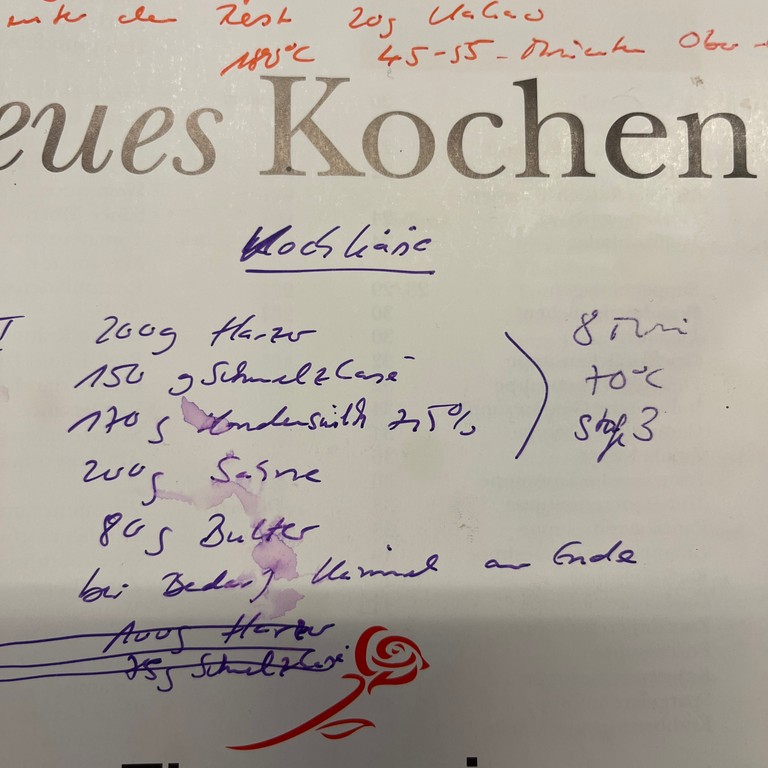 unter den Rest 20g Kakao
180°C 45-55 Minuten Ober-
eues Kochen
Kochkäse
I 200g Harzer 8 Min
150 g Schmelzkäse 70°C
170 g Kondensmilch 7,5% Stufe 3
200g Sahne
80g Butter
bei Bedarf Kümmel am Ende
100g Harzer
75g Schmelzkäse